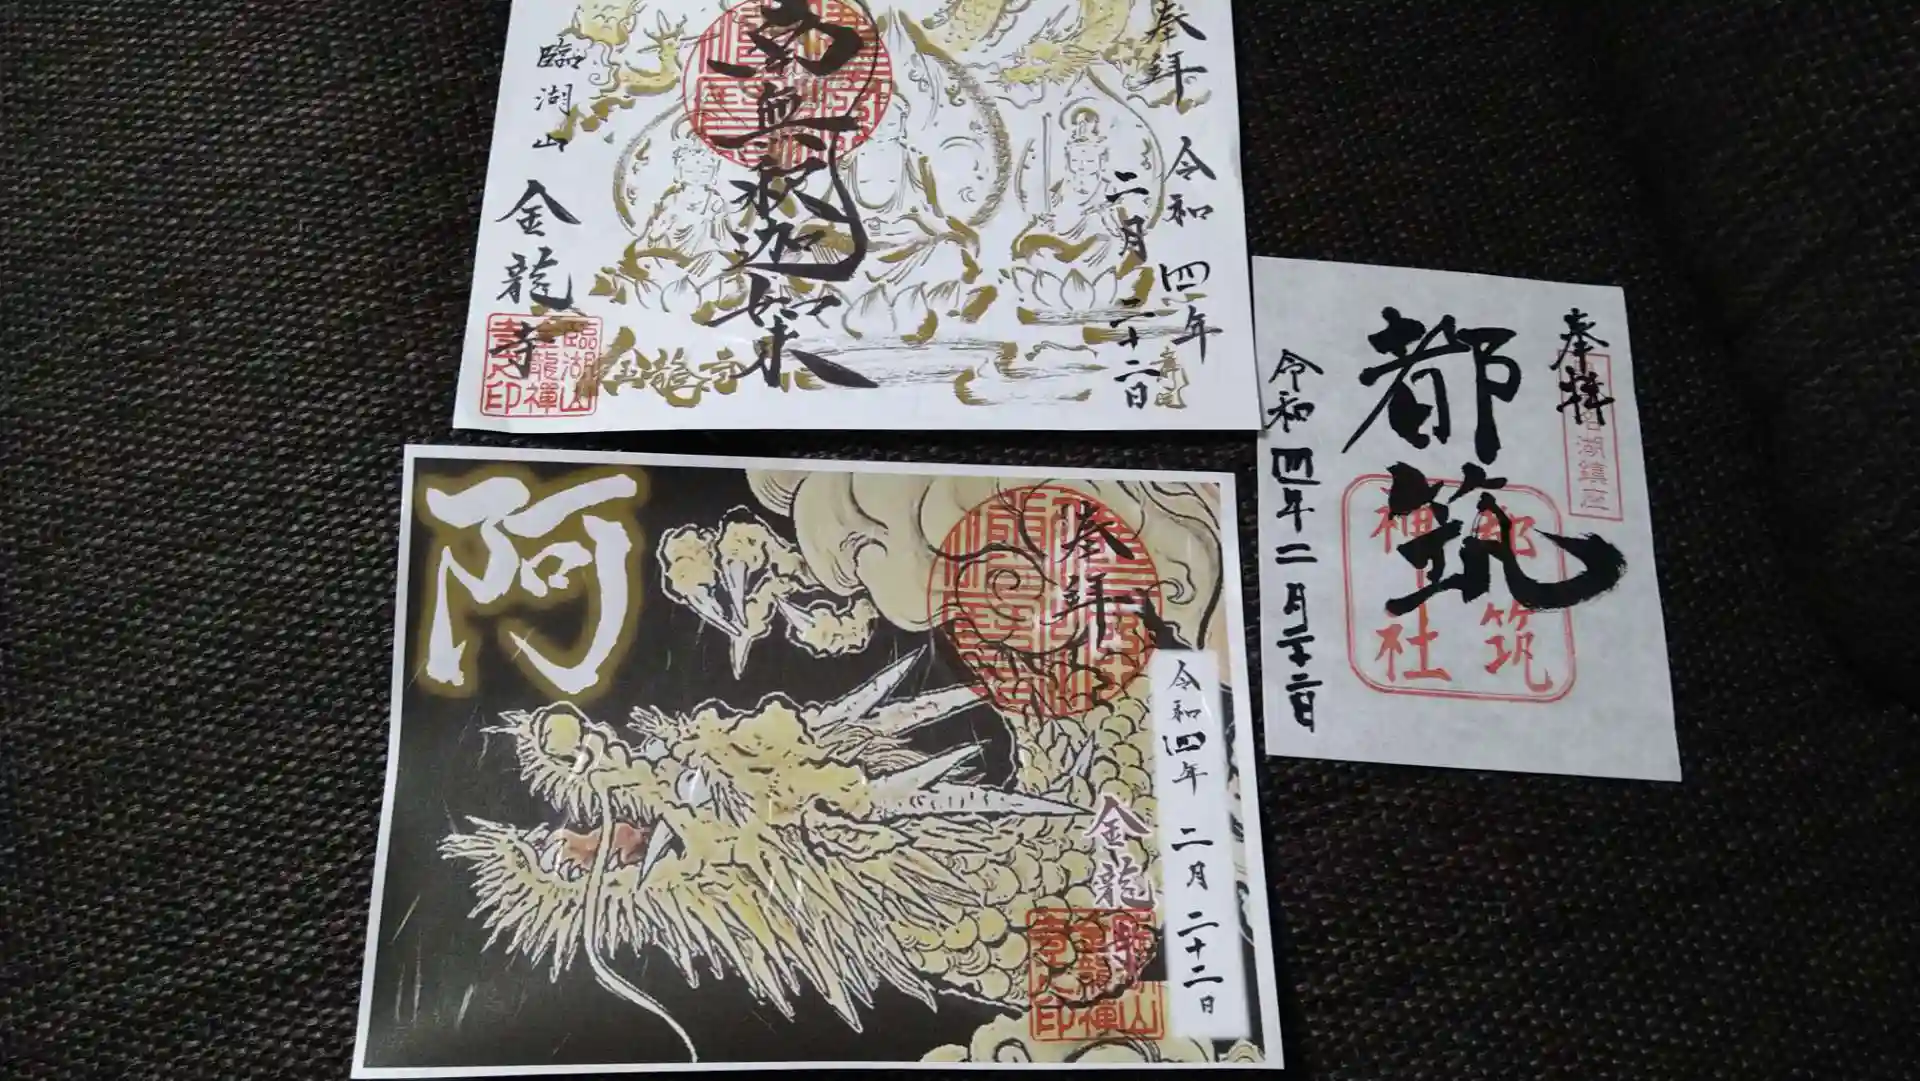 奉拝
令和四年
二月二十二日
南無釈迦如来
臨湖山
金龍寺
臨湖山
金龍禅
寺之印
金龍寺
奉拝
湖鎮座
都筑
都筑
神社
令和四年二月二十二日
阿
奉拝
令和四年 二月 二十二日
金龍寺
山
金龍禅
寺之印